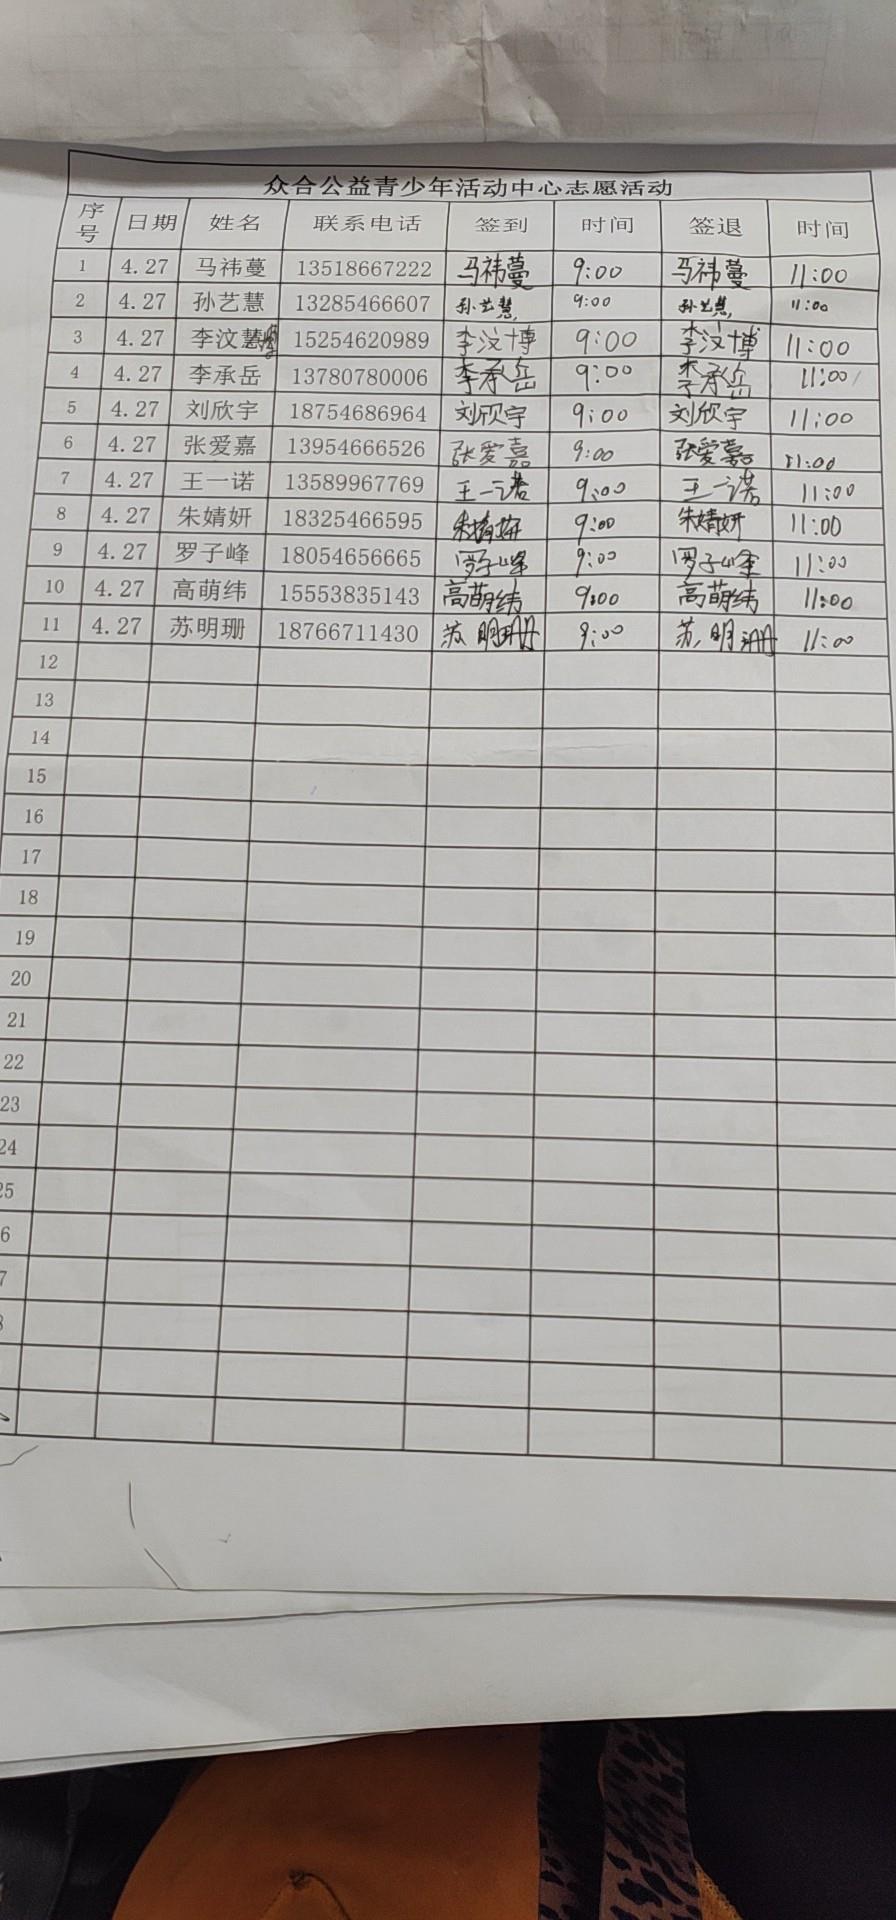 众合公益青少年活动中心志愿活动
序号 日期 姓名 联系电话 签到 时间 签退 时间
1 4.27 马祎蔓 13518667222 马祎蔓 9:00 马祎蔓 11:00
2 4.27 孙艺慧 13285466607 孙艺慧 9:00 孙艺慧 11:00
3 4.27 李汶慧博 15254620989 李汶博 9:00 李汶博 11:00
4 4.27 李承岳 13780780006 李承岳 9:00 李承岳 11:00
5 4.27 刘欣宇 18754686964 刘欣宇 9:00 刘欣宇 11:00
6 4.27 张爱嘉 13954666526 张爱嘉 9:00 张爱嘉 11:00
7 4.27 王一诺 13589967769 王一诺 9:00 王一诺 11:00
8 4.27 朱婧妍 18325466595 朱婧妍 9:00 朱婧妍 11:00
9 4.27 罗子峰 18054656665 罗子峰 9:00 罗子峰 11:00
10 4.27 高萌纬 15553835143 高萌纬 9:00 高萌纬 11:00
11 4.27 苏明珊 18766711430 苏明珊 9:00 苏明珊 11:00
12
13
14
15
16
17
18
19
20
21
22
23
24
25
6
7
8